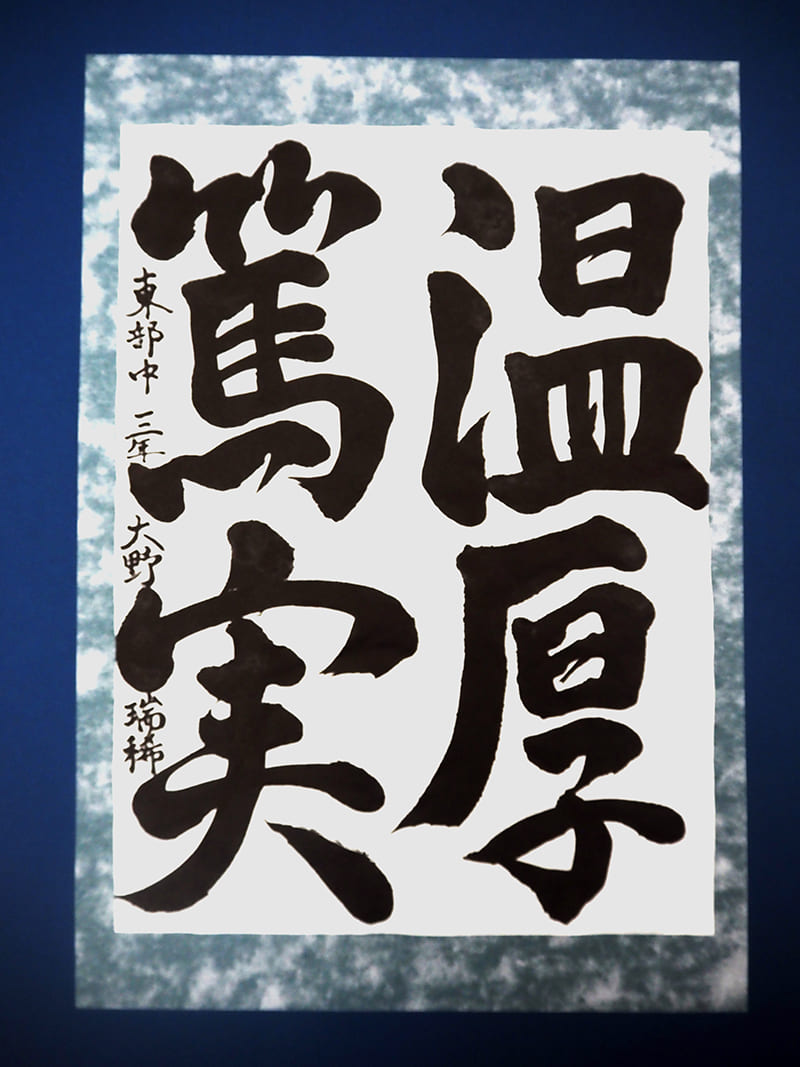 温厚
篤実
東部中 三年 大野 瑞稀